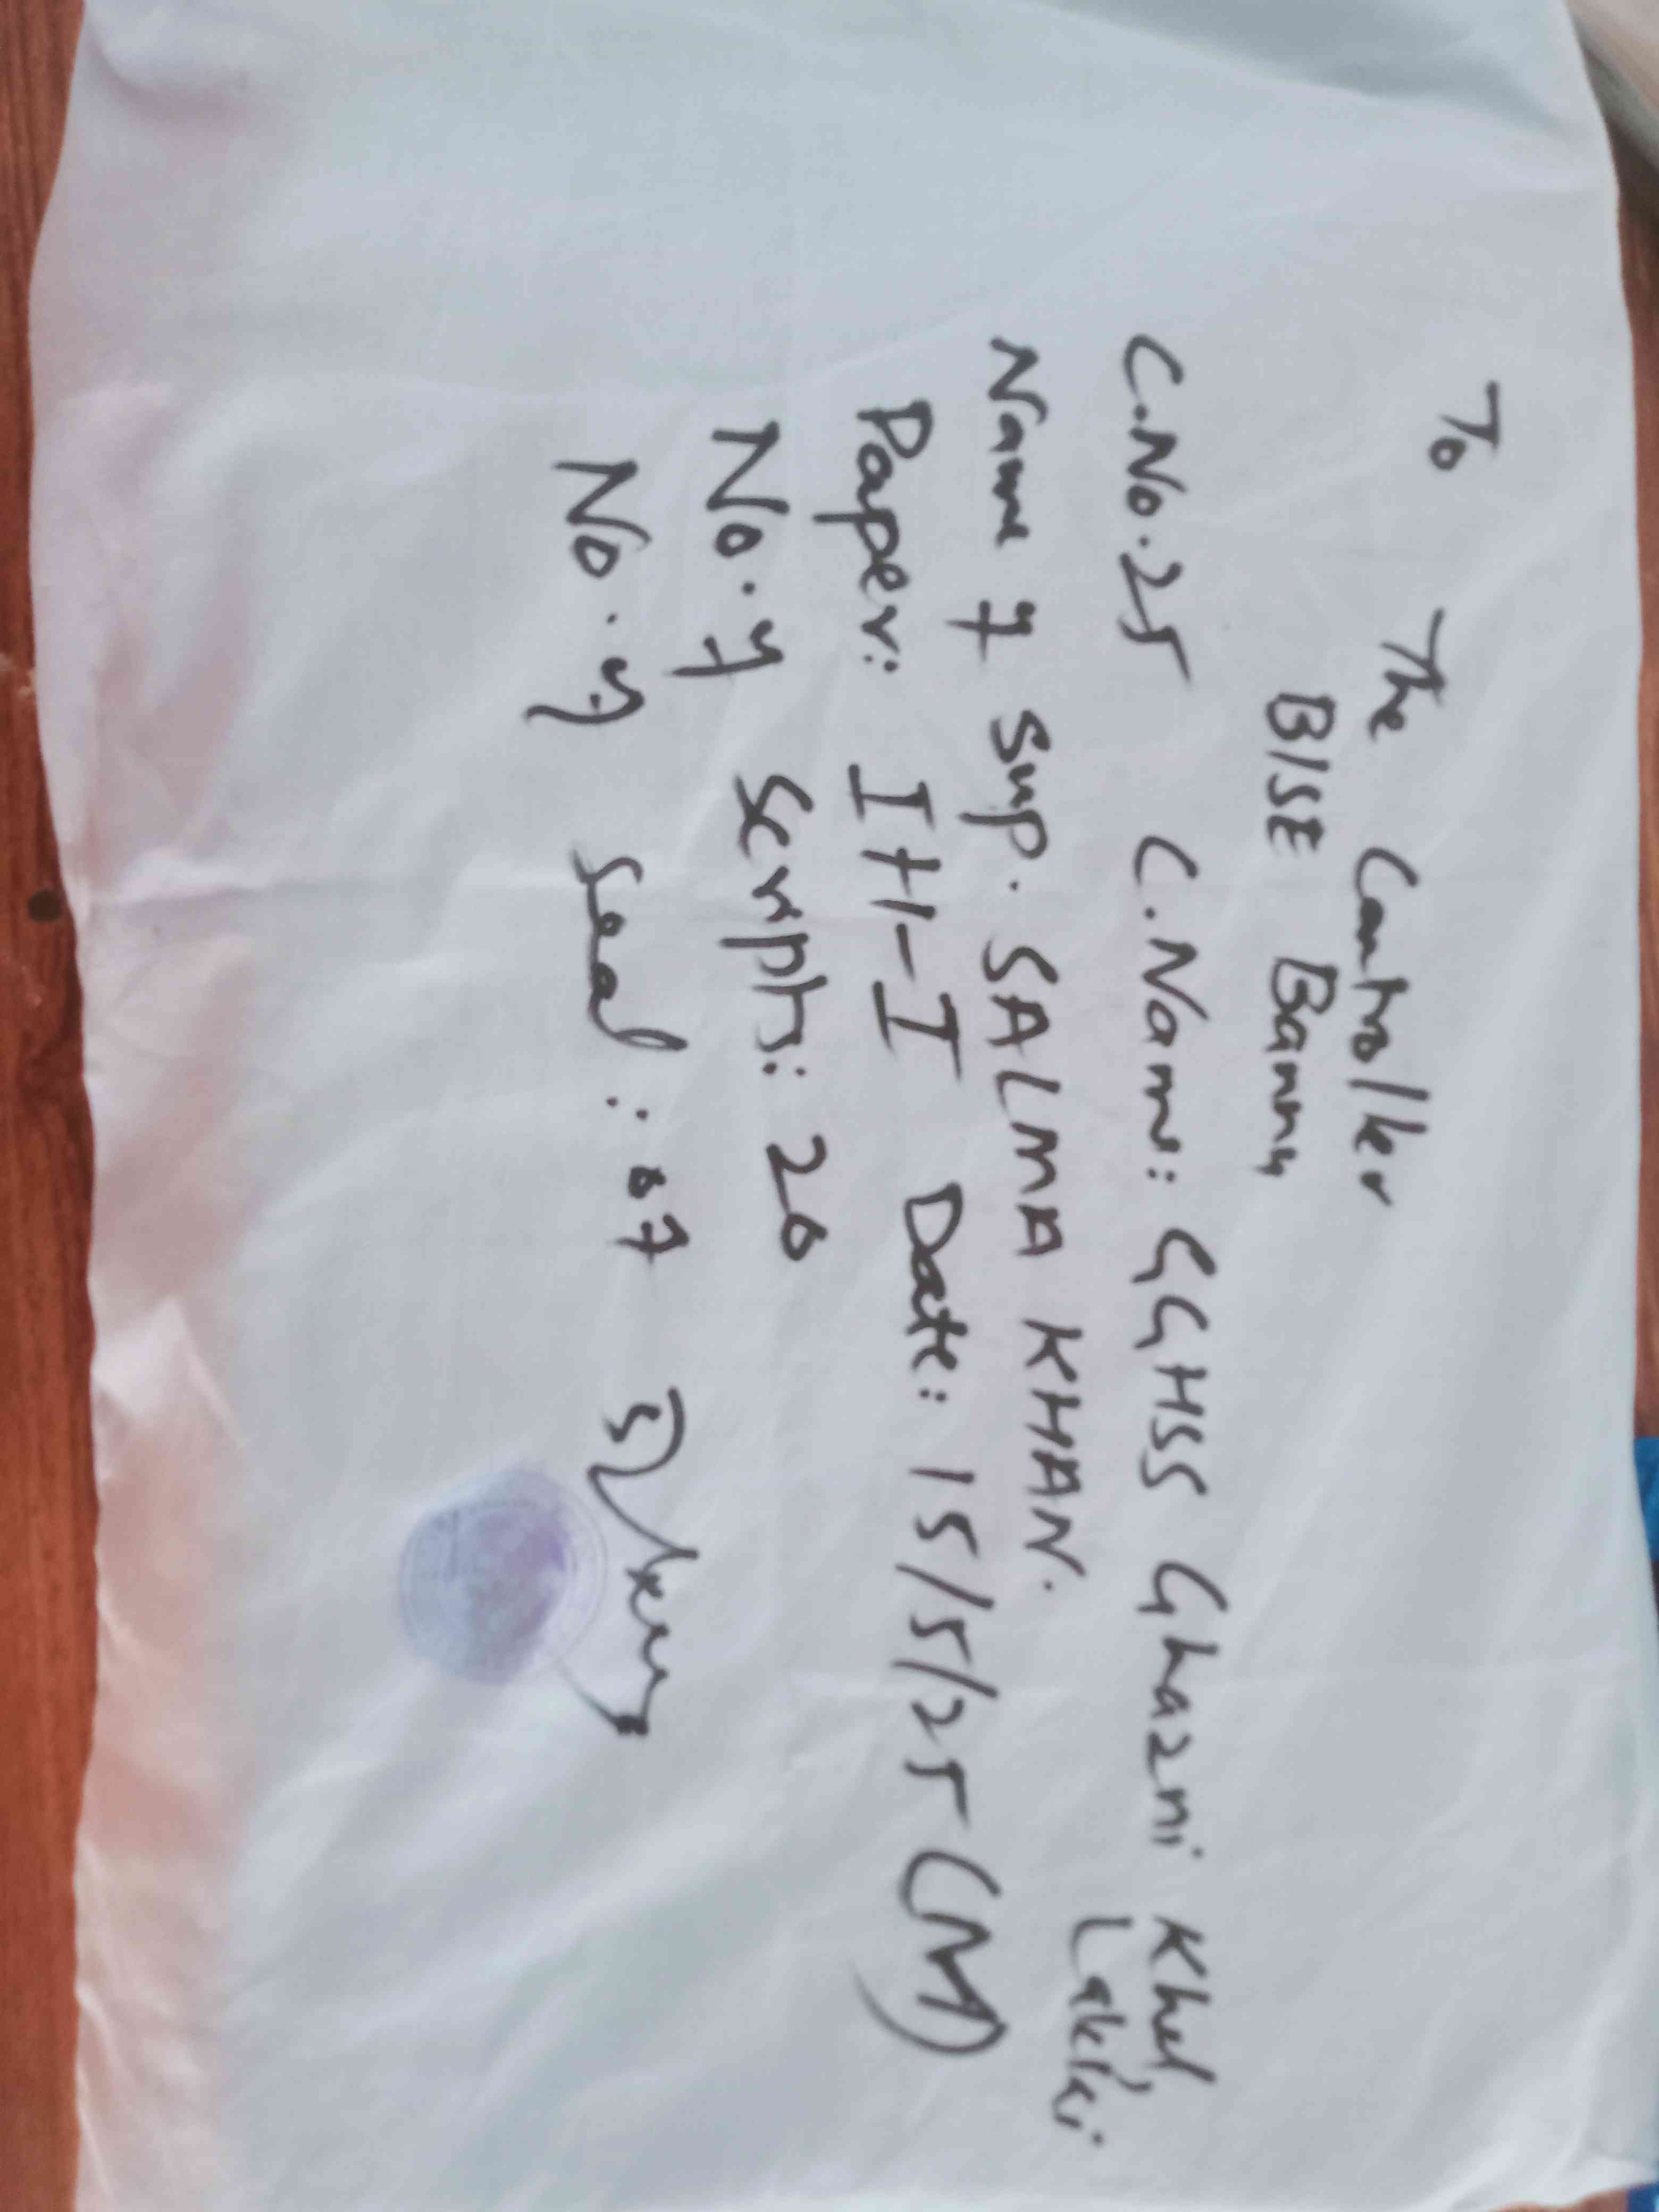 To The Controller
BISE Bannu
C.No.25 C.Name: GGHSS Ghazni Khel,
Lakki
Name of Sup. SALMA KHAN.
Paper: IH-I Date: 15/5/25 (M)
No. of Scripts: 26
No. of Seal: 07